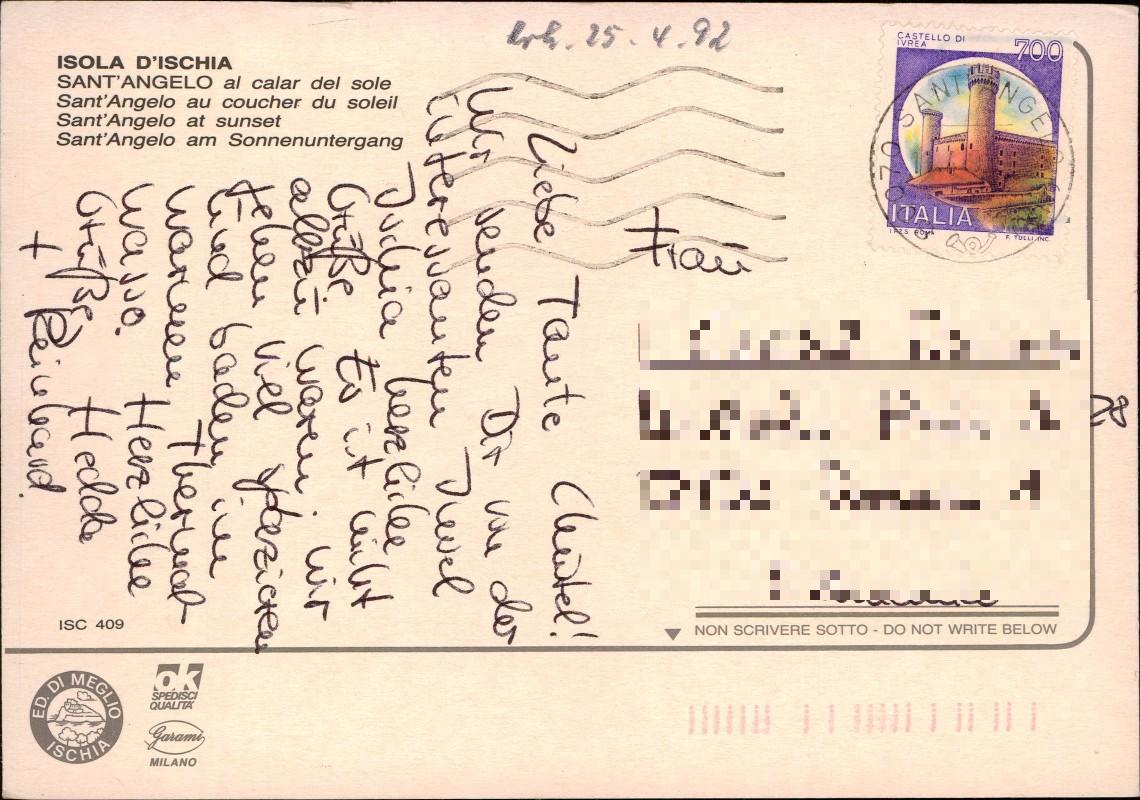 erh. 25.4.92
ISOLA D'ISCHIA
SANT'ANGELO al calar del sole
Sant'Angelo au coucher du soleil
Sant'Angelo at sunset
Sant'Angelo am Sonnenuntergang
CASTELLO DI
IVREA
700
ITALIA
I.P.Z.S. ROMA
F. TULLI INC.
SANT'ANGELO
Liebe Tante Christel!
Wir senden Dir von der
interessanten Insel
Ischia herzliche
Grüße. Es ist nicht
allzu warm. Wir
gehen viel spazieren
und baden im
warmen Thermal-
wasser.
Herzliche
Grüße Hedda
+ Reinhard.
Frau
28
ISC 409
NON SCRIVERE SOTTO - DO NOT WRITE BELOW
ED. DI MEGLIO
ISCHIA
ok
SPÉDISCI
QUALITÀ
Garami
MILANO